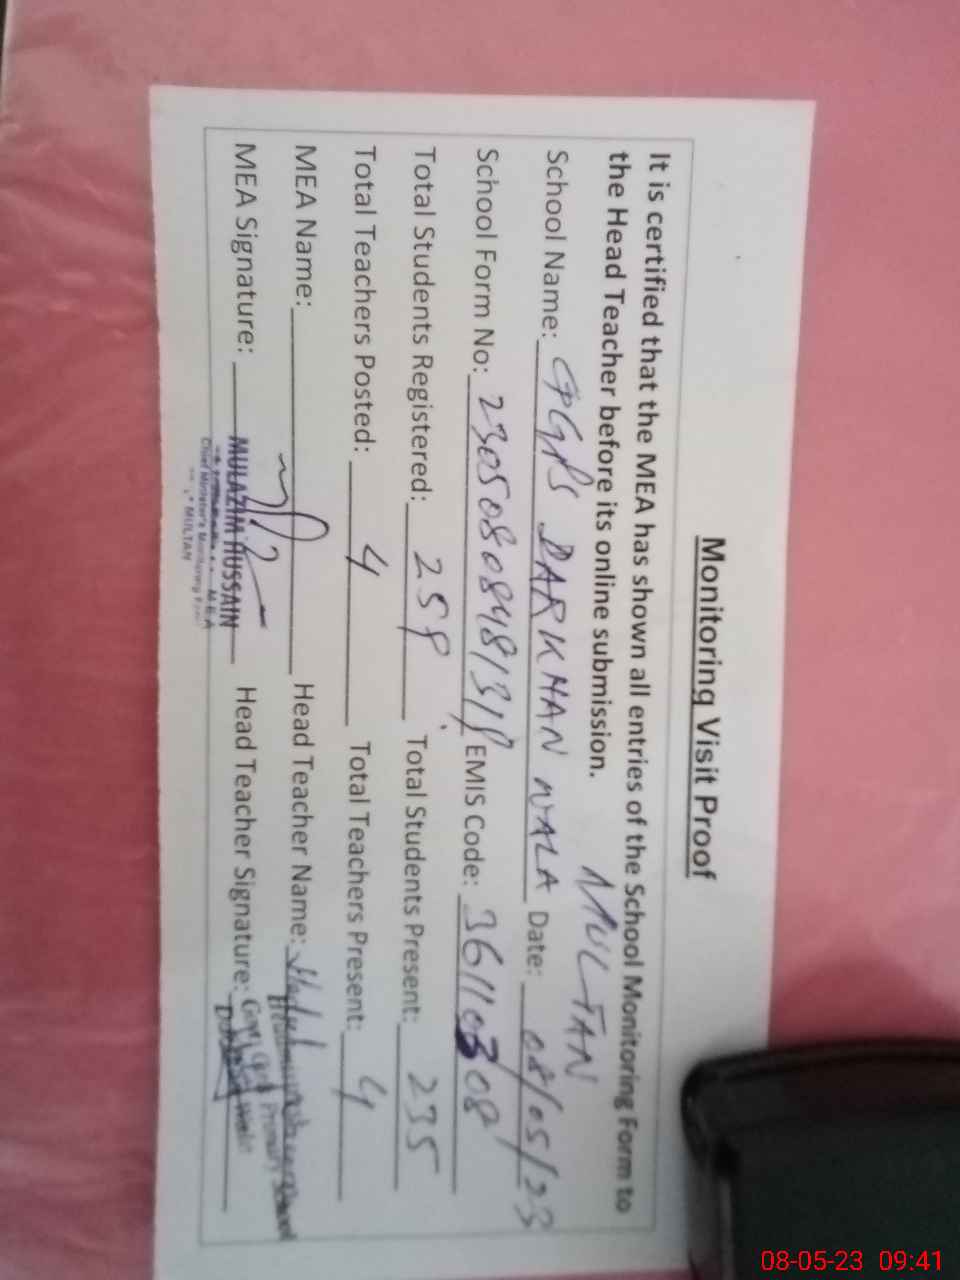 Monitoring Visit Proof
It is certified that the MEA has shown all entries of the School Monitoring Form to
the Head Teacher before its online submission.
MULTAN
School Name: GGPS DARKHAN WALA Date: 08/05/23
School Form No: EMIS Code: 36110308
Total Students Registered: 259 Total Students Present: 235
Total Teachers Posted: 4 Total Teachers Present: 4
MEA Name: Head Teacher Name:
MEA Signature: Head Teacher Signature:
MULAZIM HUSSAIN
MEA
Chief Minister's Monitoring Force
MULTAN
Govt. Primary School
08-05-23 09:41